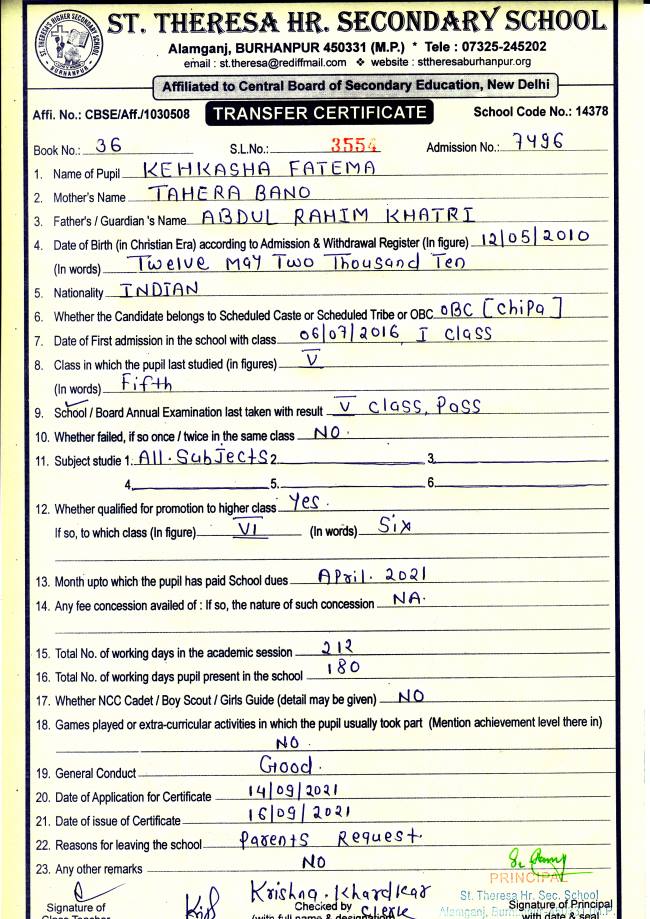 ST. THERESA HR. SECONDARY SCHOOL
ST. THERESA'S HIGHER SECONDARY SCHOOL
BURHANPUR
Alamganj, BURHANPUR 450331 (M.P.) * Tele : 07325-245202
email : st.theresa@rediffmail.com ❖ website : sttheresaburhanpur.org
Affiliated to Central Board of Secondary Education, New Delhi
Affi. No.: CBSE/Aff./1030508 TRANSFER CERTIFICATE School Code No.: 14378
Book No.: 36 S.L.No.: 3554 Admission No.: 7496
1. Name of Pupil KEHKASHA FATEMA
2. Mother's Name TAHERA BANO
3. Father's / Guardian 's Name ABDUL RAHIM KHATRI
4. Date of Birth (in Christian Era) according to Admission & Withdrawal Register (In figure) 12/05/2010
(In words) Twelve May Two Thousand Ten
5. Nationality INDIAN
6. Whether the Candidate belongs to Scheduled Caste or Scheduled Tribe or OBC OBC [Chipa]
7. Date of First admission in the school with class 06/07/2016 I class
8. Class in which the pupil last studied (in figures) V
(In words) Fifth
9. School / Board Annual Examination last taken with result V class, Pass
10. Whether failed, if so once / twice in the same class NO.
11. Subject studie 1. All.Subjects 2. 3.
4. 5. 6.
12. Whether qualified for promotion to higher class Yes.
If so, to which class (In figure) VI (In words) Six
13. Month upto which the pupil has paid School dues April. 2021
14. Any fee concession availed of : If so, the nature of such concession NA.
15. Total No. of working days in the academic session 212
16. Total No. of working days pupil present in the school 180
17. Whether NCC Cadet / Boy Scout / Girls Guide (detail may be given) NO
18. Games played or extra-curricular activities in which the pupil usually took part (Mention achievement level there in)
NO.
19. General Conduct Good.
20. Date of Application for Certificate 14/09/2021
21. Date of issue of Certificate 16/09/2021
22. Reasons for leaving the school Parents Request.
23. Any other remarks NO
PRINCIPAL
Krishna. Khardkar
St. Theresa Hr. Sec. School
Signature of Checked by Clerk Signature of Principal
Alamganj, Burh
Class Teacher (with full name & designation) with date & seal